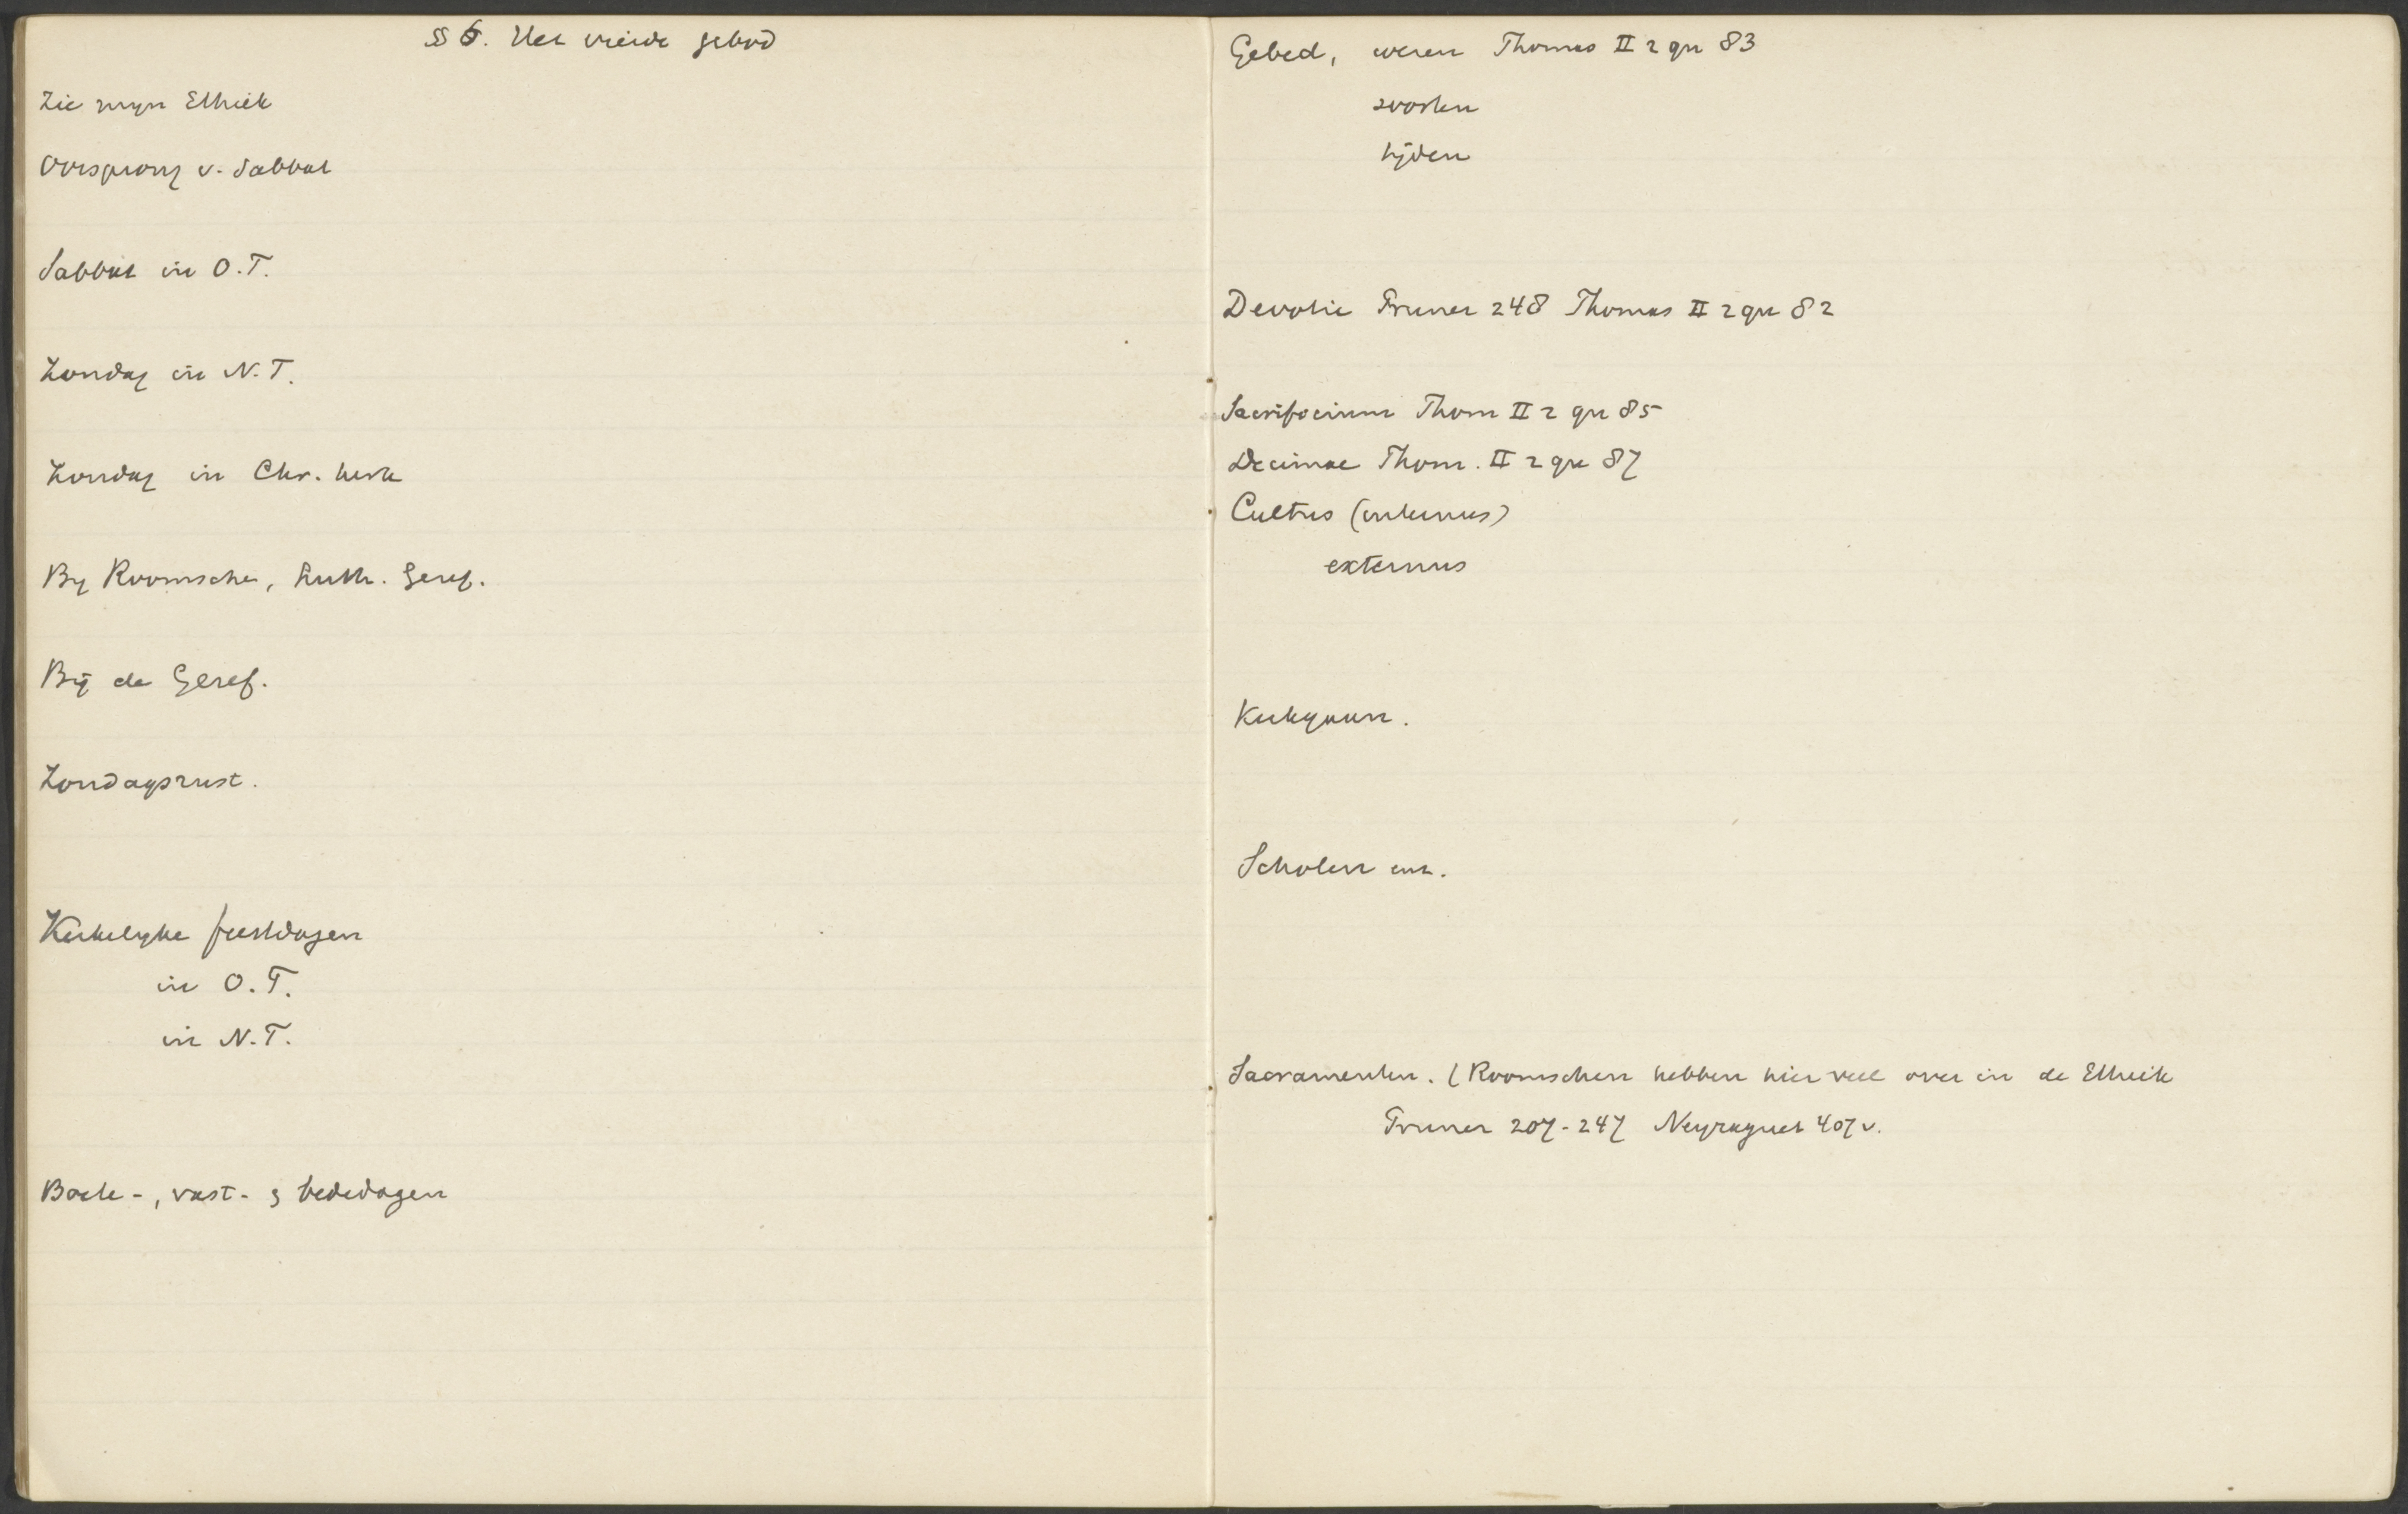 § 6. Het vierde gebod
Zie myn Ethiek
Oorsprong v. Sabbat
Sabbat in O.T.
Zondag in N.T.
Zondag in Chr. kerk
By Roomsche, Luth. Geref.
Bij de Geref.
Zondagsrust.
Kerkelyke feestdagen
in O.T.
in N.T.
Boete-, vast- & bededagen
Gebed, wezen Thomas II 2 qu 83
soorten
tijden
Devotie Pruner 248 Thomas II 2 qu 82
Sacrificium Thom II 2 qu 85
Decimae Thom. II 2 qu 87
Cultus (internus)
externus
Kerkgaan.
Scholen enz.
Sacramenten. (Roomschen hebben hier veel over in de Ethiek
Pruner 207-247 Neyraguet 407 v.